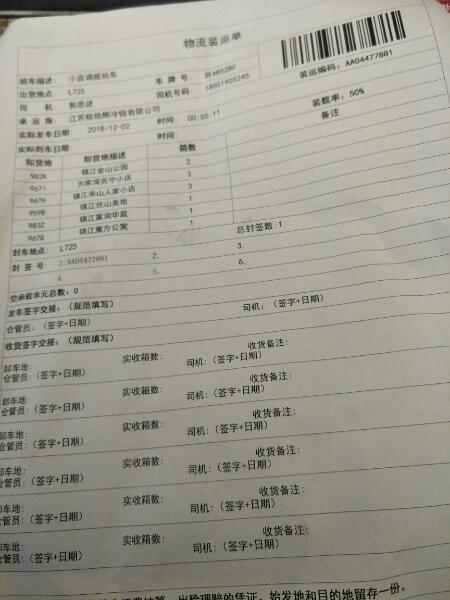 物流装运单
装运编码: AA04477881
班车描述: 小店调拨班车 车 牌 号: 苏AR5280
出货地点: L725 司机号码: 18651905245
司 机: 郭思进
承 运 商: 江苏极地熊冷链有限公司 装载率: 50%
实际发车日期 2018-12-02 时间: 00:55:11 备注
实际到车日期: 时间:
卸货地 卸货地描述 箱数
982N 镇江金山公园 2
967I 方家湾苏宁小店 3
967H 镇江米山人家小店 3
959B 镇江优山美地 1
983Z 镇江富润华庭 1
967G 镇江魔方公寓 1
封车地点: L725 总封签数:1
封 签 号: 1.AA04477881 2. 3.
4. 5. 6.
空承载单元总数: 0
发车签字交接: (规范填写)
仓管员: (签字+日期) 司机: (签字+日期)
收货签字交接: (规范填写)
卸车地: 实收箱数: 收货备注:
仓管员: (签字+日期) 司机: (签字+日期)
卸车地: 实收箱数: 收货备注:
仓管员: (签字+日期) 司机: (签字+日期)
卸车地: 实收箱数: 收货备注:
仓管员: (签字+日期) 司机: (签字+日期)
卸车地: 实收箱数: 收货备注:
仓管员: (签字+日期) 司机: (签字+日期)
卸车地: 实收箱数: 收货备注:
仓管员: (签字+日期) 司机: (签字+日期)
卸车地: 实收箱数: 收货备注:
仓管员: (签字+日期) 司机: (签字+日期)
出险理赔的凭证。始发地和目的地留存一份。